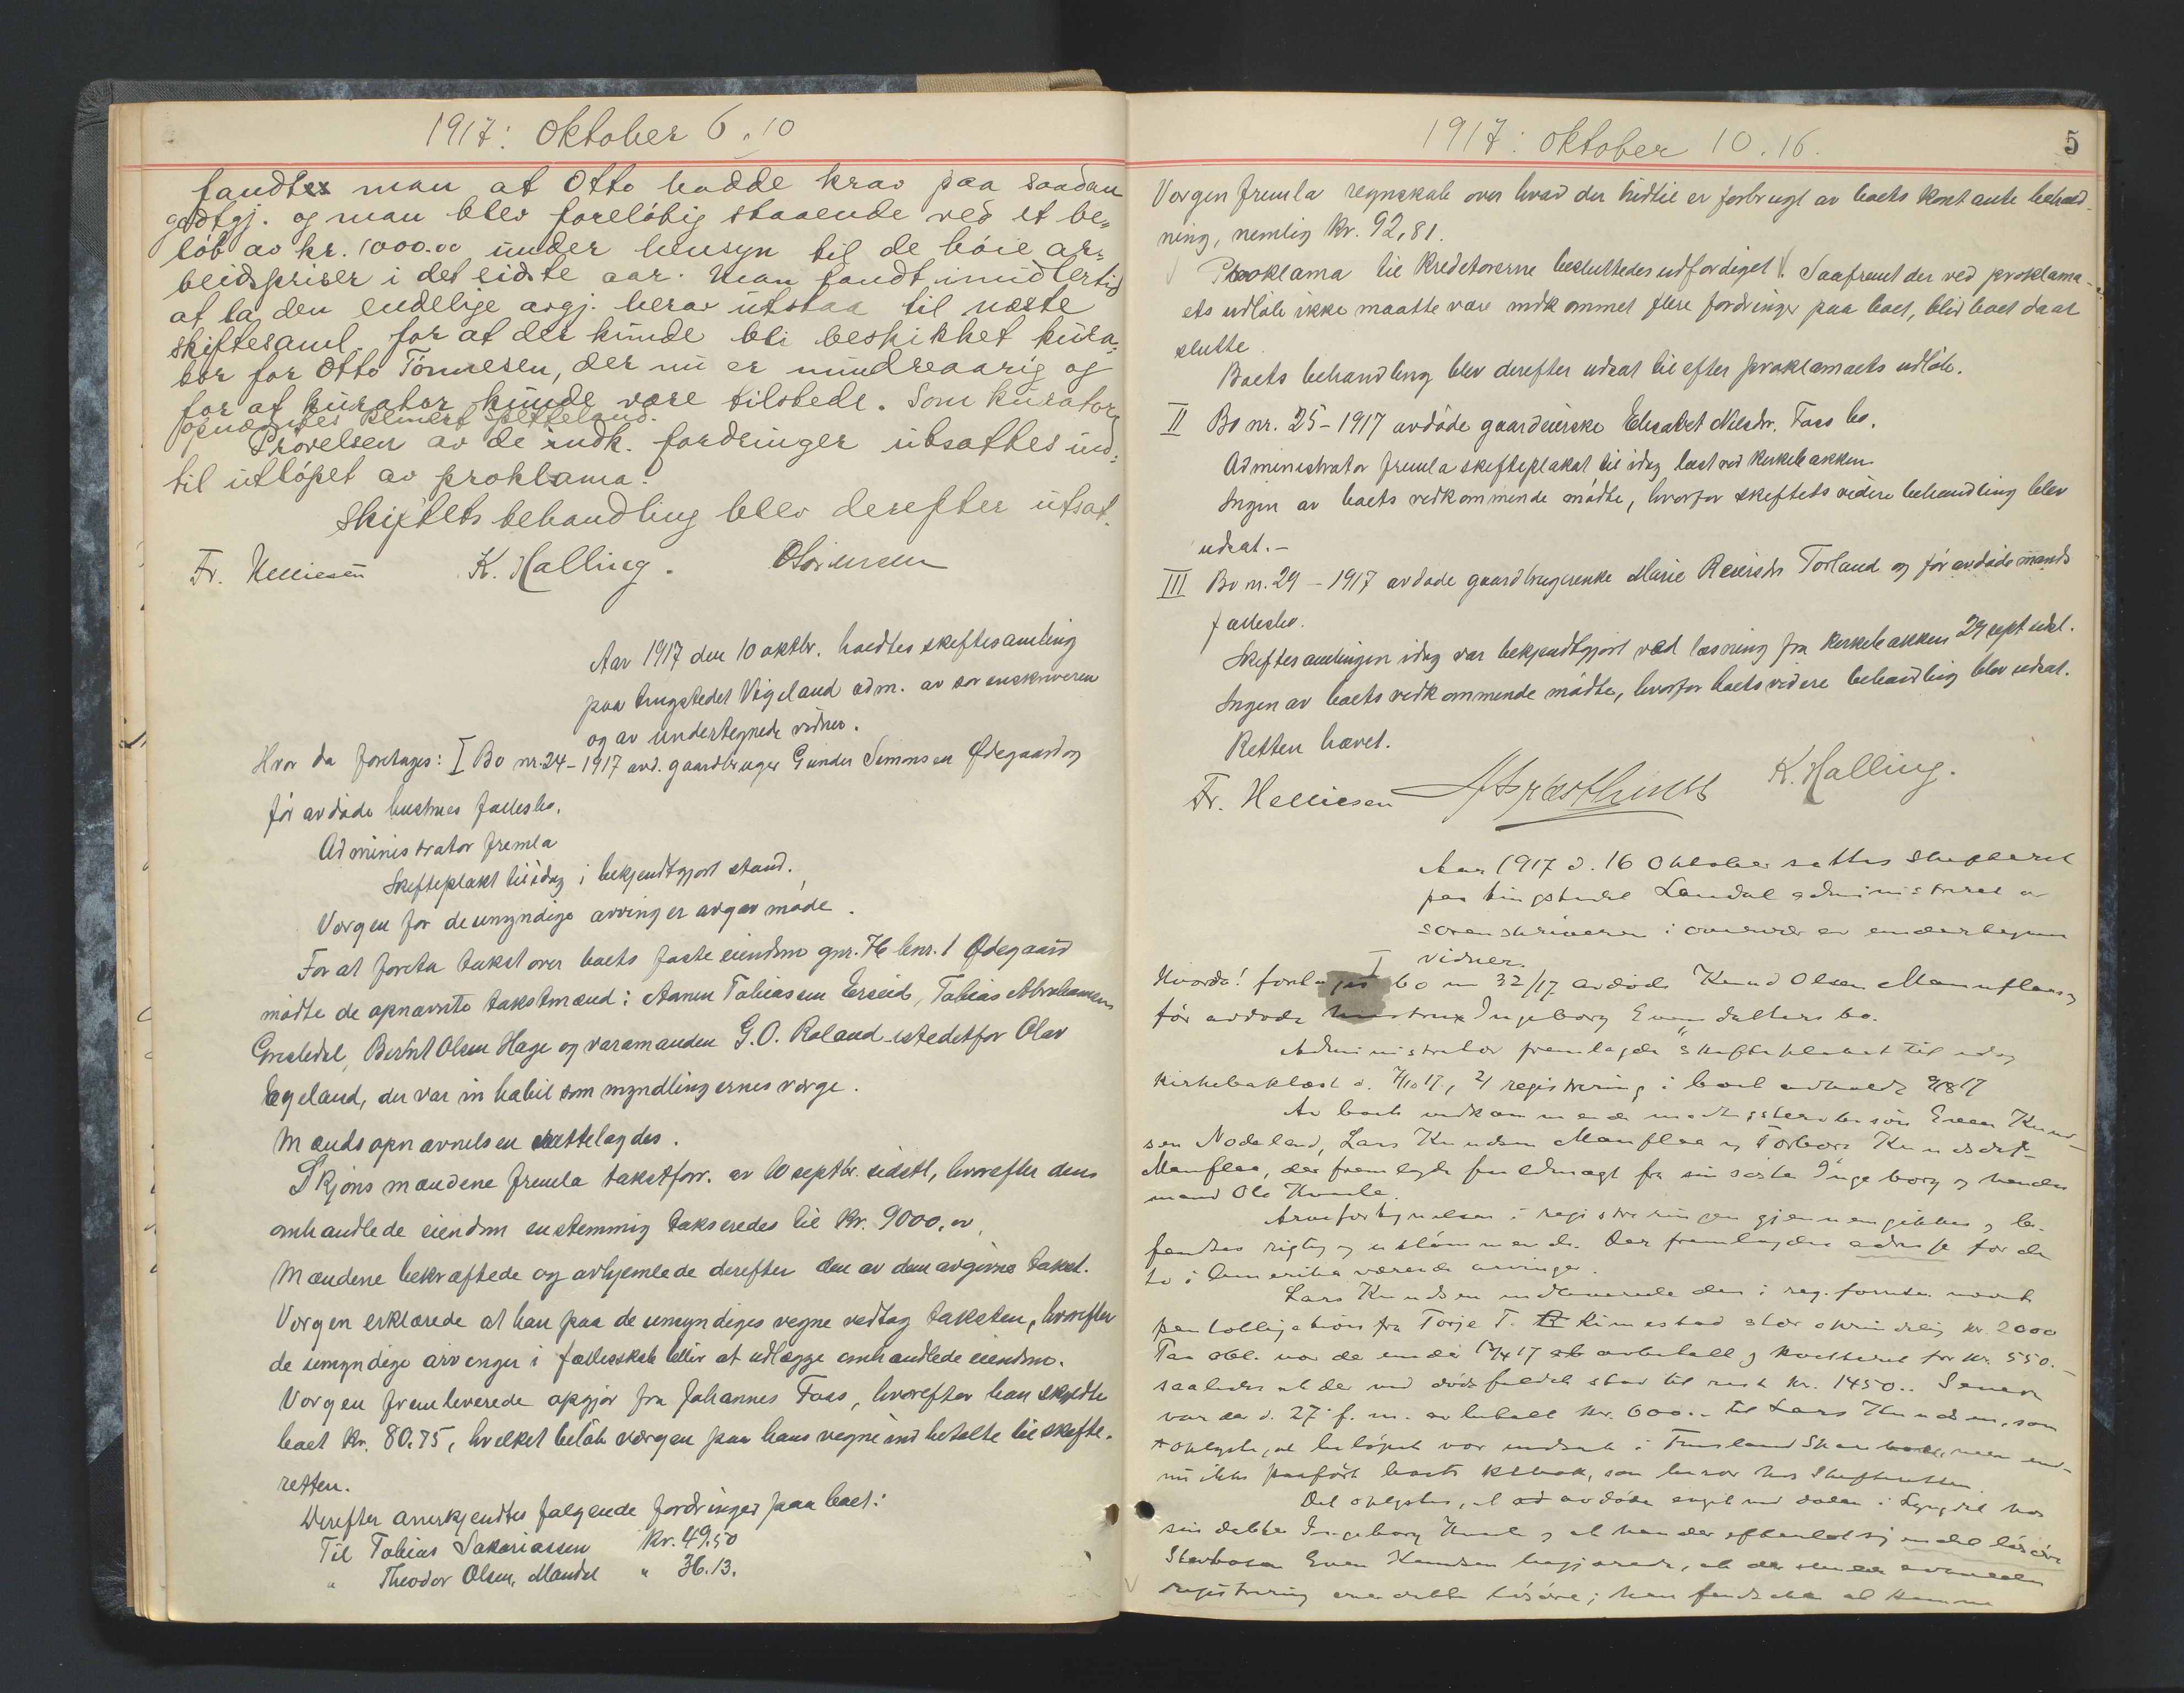 1917: Oktober 6. 10
fandtes man at Otto hadde krav paa saadan
godtgj. og man blev foreløbig staaende ved et be-
løb av kr. 1000.00 under hensyn til de høie ar-
beidspriser i det sidste aar. Man fandt imidlertid
at la den endelige avgj. herav utstaa til næste
skiftesaml. for at der kunde bli beskikket kura-
tor for Otto Tønnesen, der nu er mindreaarig og
for at kurator kunde være tilstede. Som kurator
opnævntes Reinert Spetteland.
Prøvelsen av de indk. fordringer utsattes ind-
til utløpet av proklama.
Skiftets behandling blev derefter utsat.
Fr. Helliesen K. Halling. O Sørensen
Aar 1917 den 10 oktbr. holdtes skiftesamling
paa tingstedet Vigeland adm. av sorenskriveren
og av undertegnede vidner.
Hvor da foretages: I Bo nr. 24 - 1917 avd. gaardbruger Gunder Simonsen Ødegaard og
før avdøde hustrues fællesbo.
Administrator fremla
Skifteplakt til idag i bekjendtgjort stand.
Vergen for de umyndige arvinger avgav møde.
For at foreta takst over boets faste eiendom gnr. 76 bnr. 1 Ødegaard
mødte de opnævnte takstmænd: Aanen Tobiassen Erseid, Tobias Abrahamsen
Grisledal, Berint Olsen Hage og varamanden G.O. Roland istedetfor Olav
Egeland, der var inhabil som myndlingernes verge.
Mændsopnævnelsen vattelagdes.
Skjønsmændene fremla takstforr. av 10 septbr. sidstl, hvorefter dens
omhandlede eiendom enstemmig takseredes til kr. 9000,00.
Mændene bekræftede og avhjemlede derefter den av dem avgivne takst.
Vergen erklærede at han paa de umyndiges vegne vedtog taksten, hvorefter
de umyndige arvinger i fællesskab bliver at udlægge omhandlede eiendom.
Vergen fremleverede opgjør fra Johannes Foss, hvorefter han skyldte
boet kr. 80.75, hvilket beløb vergen paa hans vegne indbetalte til skifte-
retten.
Derefter anerkjendtes følgende fordringer paa boet:
Til Tobias Sakariassen kr. 49.50
" Theodor Olsen, Mandal " 36.13.
1917: oktober 10. 16. 5
Vergen fremla regnskab over hvad der hidtil er forbrugt av boets kontante behold-
ning, nemlig kr. 92,81.
Proklama til kreditorerne besluttedes udfærdiget. Saafremt der ved proklama-
ets udløb ikke maatte være indkommet flere fordringer paa boet, blir boet da at
slutte.
Boets behandling blev derefter udsat til efter proklamaets udløb.
II Bo nr. 25 - 1917 avdøde gaardeierske Elisabet Nilsdtr. Foss bo.
Administrator fremla skifteplakat til idag læst ved kirkebakken
Ingen av boets vedkommende mødte, hvorfor skiftets videre behandling blev
udsat. -
III Bo nr. 29 - 1917 avdøde gaardbrugerenke Marie Reiersdtr Torland og før avdøde mands
fællesbo.
Skiftesamlingen idag var bekjendtgjort ved læsning fra kirkebakken 29 sept sidstl.
Ingen av boets vedkommende mødte, hvorfor boets videre behandling blev udsat.
Retten hævet.
Fr. Helliesen K. Halling.
Aar 1917 d. 16 Oktober sattes skifteret
paa tingstedet Laudal administreret av
sorenskriveren i overvær av undertegnede
vidner.
Hvorda! foretages I bo nr 32/17 avdøde Knud Olsen Mannflaa og
før avdøde hustrue Ingeborg Evensdatters bo.
Administrator fremlagde skifteplakat til idag
kirkebaklæst d. 7/10 17, 2) registrering i boet avholdt
Av boets vedkommende mødte stervbosøn Even Knud-
sen Nodeland, Lars Knudsen Manflaa og Torborg Knudsdtr
Manflaa, der fremlagde fuldmagt fra sin søster Ingeborg og hendes
mand Ole
Arvefortegnelsen i registreringen gjennemgikkes og be-
fandtes rigtig og Der fremlagdes adresse for de
to i Amerika værende arvinger.
Lars Knudsen indleverede den i reg. nævnte
pantobligation fra Torje T. Rimestad stor oprindelig kr. 2000
Paa obl. var der endda avbetalt og kvitteret for kr. 550.-
saaledes at der ved dødsfaldet stod til rest kr. 1450.. Senere
var der d. 27 f. m. avbetalt kr. 600.- til Lars Knudsen, som
oplyste, at beløpet var indsat i Finsland Sparebank, men end-
nu ikke paaført boets bok, som beror hos Skifteretten.
Det oplystes, at avdøde
sin datter Ingeborg og at han der efterlot sig en del løsøre
Stervbosøn Even Knudsen begjærede, at der skulde avholdes
registrering over dette løsøre; han fandt at